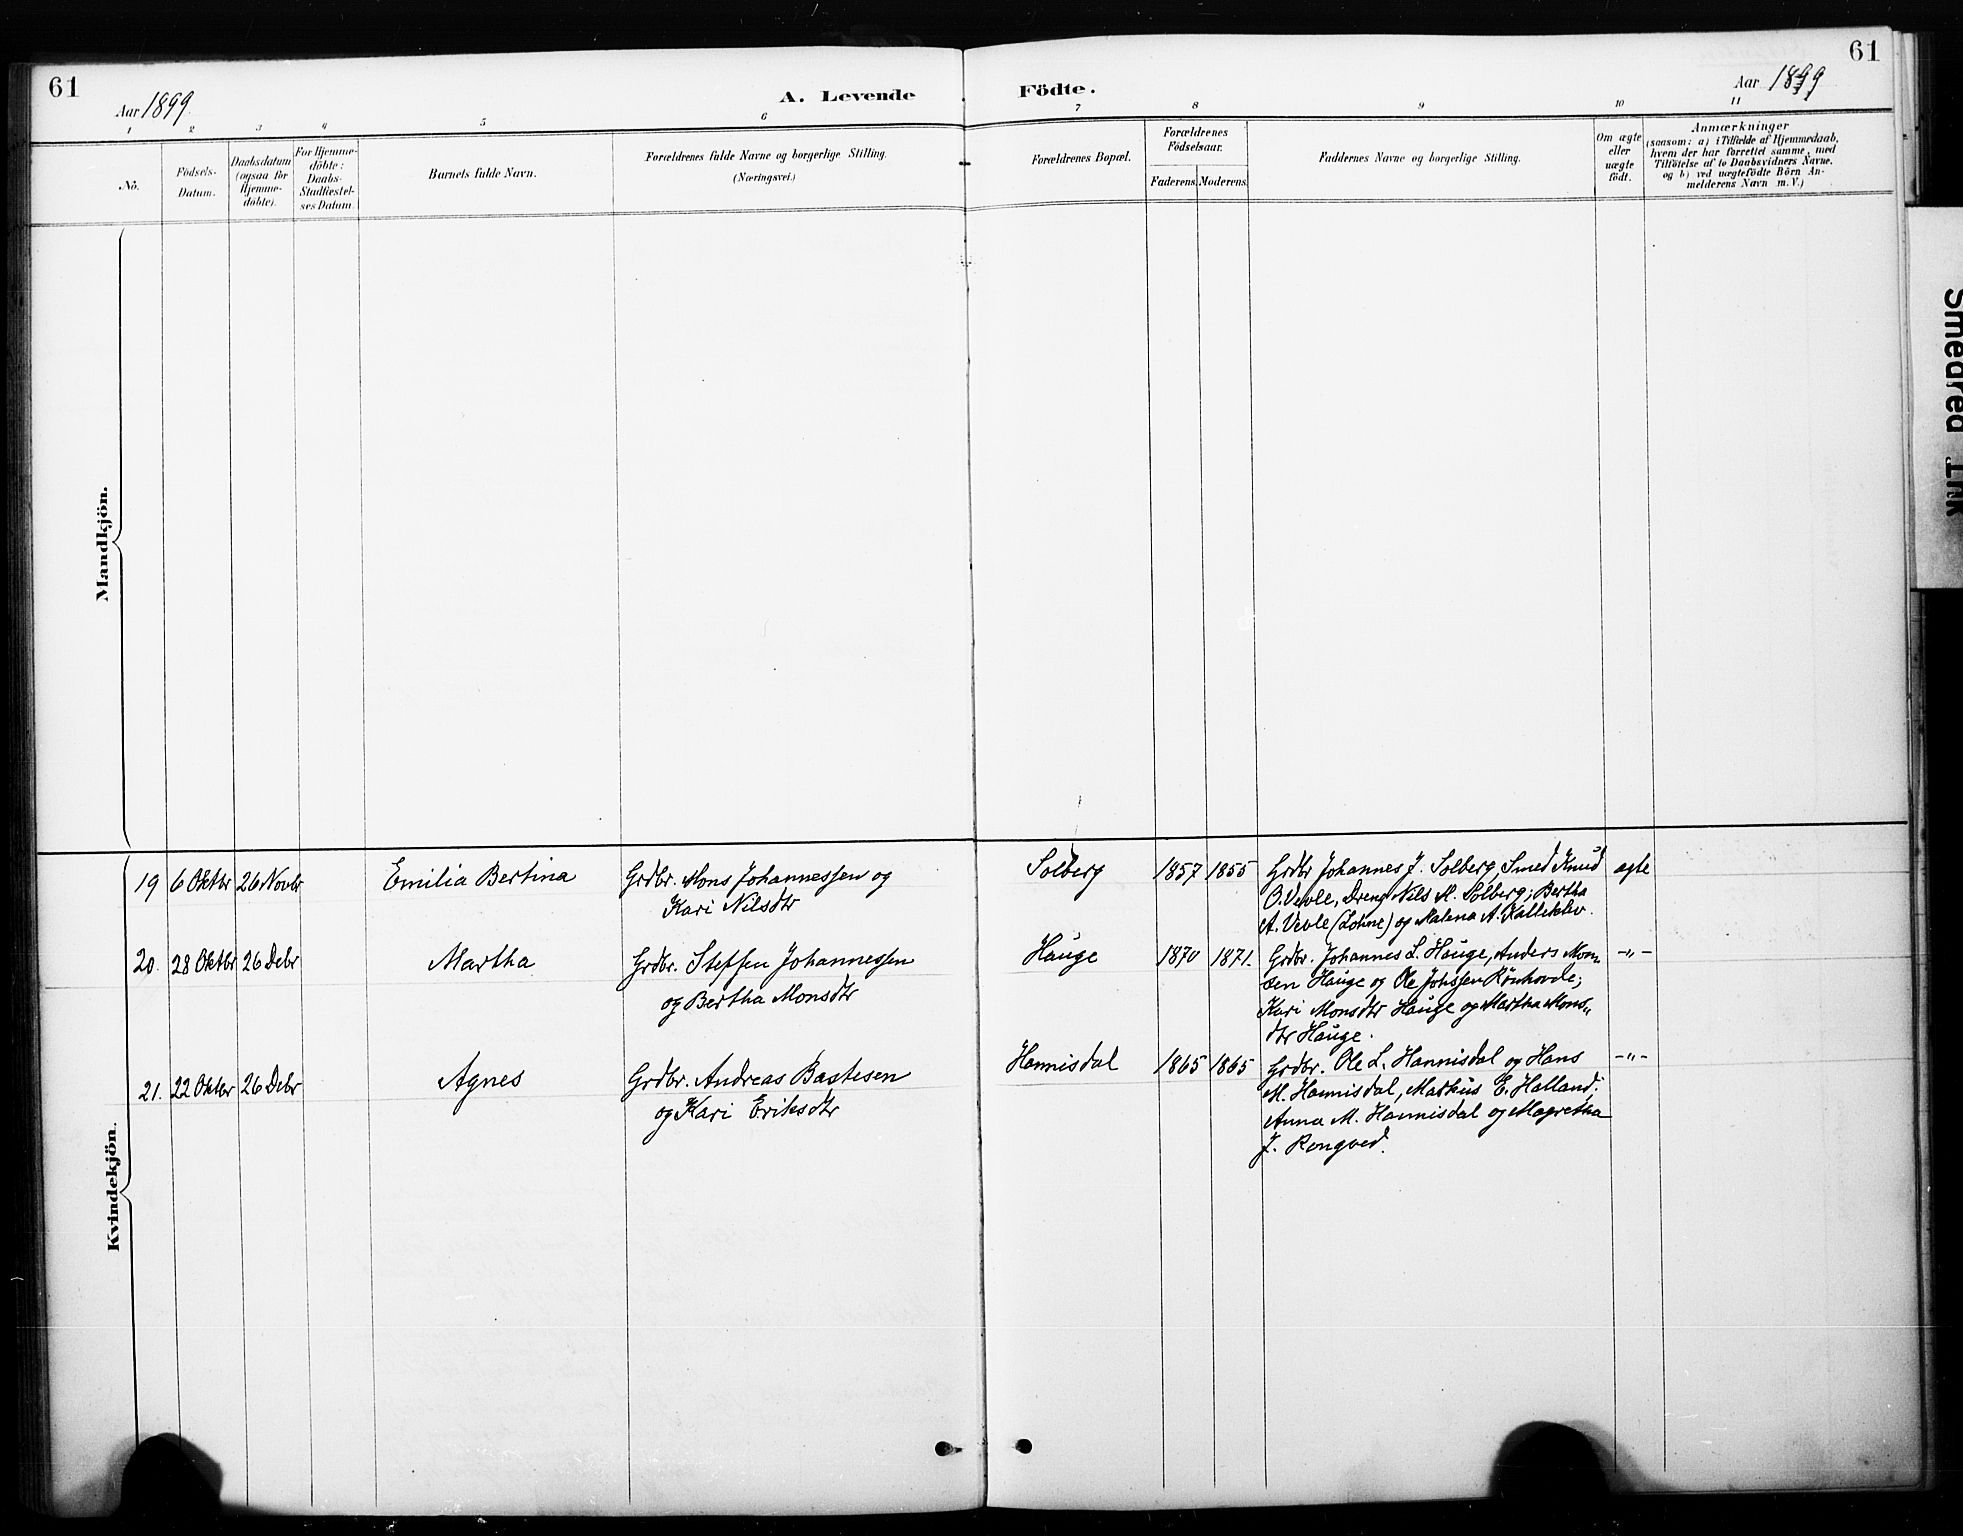 61
61
Aar 1899
A. Levende
Födte.
Aar 1899
1
2
3
4
5
6
7
8
9
10
11
Nö.
Födsels-
Datum.
Daabsdatum
(ogsaa for
Hjemme-
döbte).
For Hjemme-
döbte:
Daabs-
Stadfæstel-
ses Datum.
Barnets fulde Navn.
Forældrenes fulde Navne og borgerlige Stilling.
(Næringsvei.)
Forældrenes Bopæl.
Forældrenes
Födselsaar.
Faderens.
Moderens.
Faddernes Navne og borgerlige Stilling.
Om ægte
eller
uægte
födt.
Anmærkninger
(saasom: a) i Tilfælde af Hjemmedaab,
hvem der har forrettet samme, med
Tilföielse af to Daabsvidners Navne.
og b) ved uægtefödte Börn An-
melderens Navn m. V.)
Mandkjön.
Kvindekjön.
19 6 Oktbr 26 Novbr Emilia Bertina Grdbr. Mons Johannessen og
Kari Nilsdtr
Solberg 1857 1855 Grdbr Johannes J. Solberg, Smed Knud
O. Vevle, Dreng Nils M. Solberg; Bertha
A. Vevle (Lohne) og Malena A. Kalleklev.
ægte
20. 28 Oktbr 26 Debr Martha Grdbr. Steffen Johannessen
og Bertha Monsdtr
Hauge 1870 1871. Grdbr. Johannes L. Hauge, Anders Mon-
sen Hauge og Ole Johssen Rönhovde;
Kari Monsdtr Hauge og Martha Mons-
dtr Hauge.
-"-
21. 22 Oktbr 26 Debr Agnes Grdbr. Andreas Bastesen
og Kari Eriksdtr
Hannisdal 1865 1865 Grdbr. Ole L. Hannisdal og Hans
M. Hannisdal, Markus E. Halland;
Anna M. Hannisdal og Magretha
J. Rongved.
-"-
Smeared Ink